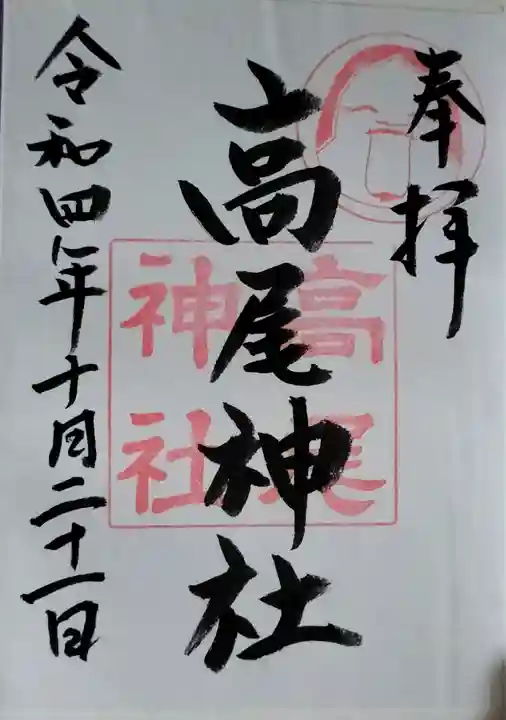 奉拝
高尾神社
高尾
神社
令和四年十月二十一日